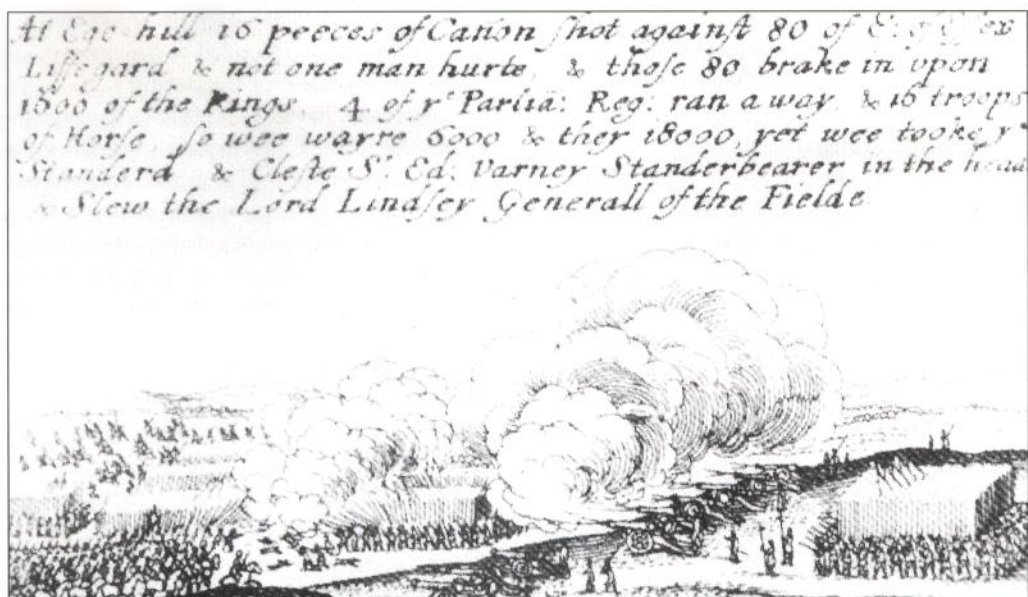 At Ege-hill 16 peeces of Canon ſhot againſt 80 of E: of Eſſex
Liffegard & not one man hurte, & thoſe 80 brake in vpon
1600 of the Kings, 4 of yᵉ Parlia: Reg: ran away & 16 troops
of Horſe, ſo wee wayre 6000 & they 18000, yet wee tooke yᵉ
Standerd & Clefte Sʳ. Ed: Varney Standerbearer in the head
& Slew the Lord Lindſey Generall of the Fielde